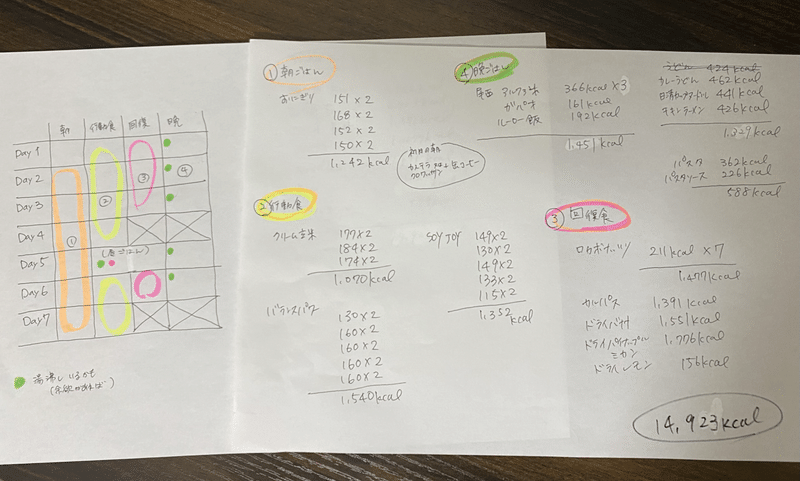 朝 行動食 回復 晩
Day 1
Day 2
Day 3
Day 4
Day 5 (昼ごはん)
Day 6
Day 7
① ② ③ ④
湯沸しいるかも
(余裕があれば)
① 朝ごはん
おにぎり 151×2
168×2
152×2
150×2
1,242kcal
初日の朝
② 行動食
クリーム玄米 177×2
184×2
174×2
1,070kcal
バランスパワー 130×2
160×2
160×2
160×2
160×2
1,540kcal
SOY JOY 149×2
130×2
149×2
133×2
115×2
1,352kcal
④ 晩ごはん
尾西 アルファ米 366kcal×3
ガパオ 161kcal
ルーロー飯 192kcal
1,451kcal
うどん 424kcal
カレーうどん 462kcal
日清カップヌードル 441kcal
チキンラーメン 426kcal
1,329kcal
パスタ 362kcal
パスタソース 226kcal
588kcal
③ 回復食
ロカボナッツ 211kcal×7
1,477kcal
カルパス 1,391kcal
ドライバナナ 1,551kcal
ドライパイナップル 1,776kcal
ミカン
ドライレモン 156kcal
14,923kcal